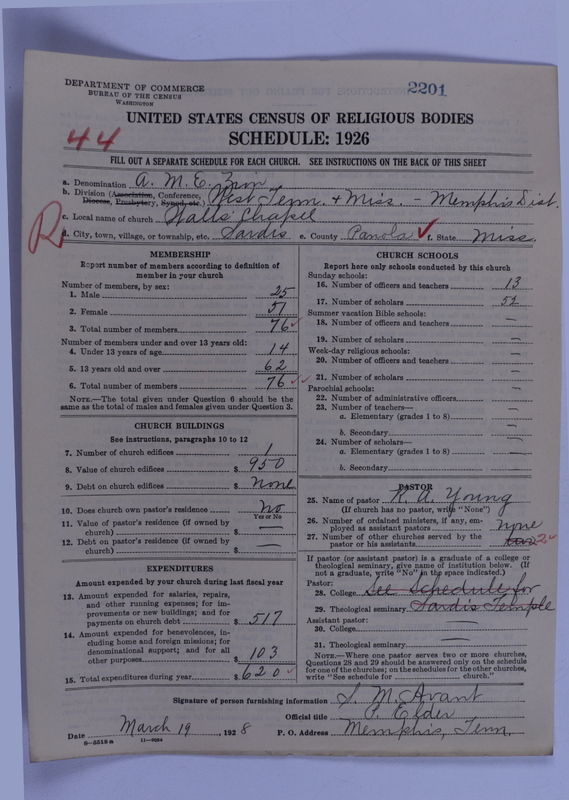 2201
DEPARTMENT OF COMMERCE
BUREAU OF THE CENSUS
WASHINGTON
UNITED STATES CENSUS OF RELIGIOUS BODIES
44
SCHEDULE: 1926
FILL OUT A SEPARATE SCHEDULE FOR EACH CHURCH. SEE INSTRUCTIONS ON THE BACK OF THIS SHEET
a. Denomination A. M. E. Zion
b. Division (Association, Conference, West Tenn. & Miss. - Memphis Dist.
Diocese, Presbytery, Synod, etc.)
c. Local name of church Walls Chapel
R
d. City, town, village, or township, etc. Sardis e. County Panola ✓ f. State Miss.
MEMBERSHIP
Report number of members according to definition of
member in your church
Number of members, by sex:
1. Male 25
2. Female 51
3. Total number of members 76 ✓
Number of members under and over 13 years old:
4. Under 13 years of age 14
5. 13 years old and over 62
6. Total number of members 76 ✓✓
NOTE.—The total given under Question 6 should be the
same as the total of males and females given under Question 3.
CHURCH BUILDINGS
See instructions, paragraphs 10 to 12
7. Number of church edifices 1
8. Value of church edifices $ 950
9. Debt on church edifices $ None
10. Does church own pastor's residence No
Yes or No
11. Value of pastor's residence (if owned by
church) $ —
12. Debt on pastor's residence (if owned by
church) $ —
EXPENDITURES
Amount expended by your church during last fiscal year
13. Amount expended for salaries, repairs,
and other running expenses; for im-
provements or new buildings; and for
payments on church debt $ 517
14. Amount expended for benevolences, in-
cluding home and foreign missions; for
denominational support; and for all
other purposes $ 103
15. Total expenditures during year $ 620 ✓
CHURCH SCHOOLS
Report here only schools conducted by this church
Sunday schools:
16. Number of officers and teachers 13
17. Number of scholars 52
Summer vacation Bible schools:
18. Number of officers and teachers —
19. Number of scholars —
Week-day religious schools:
20. Number of officers and teachers —
21. Number of scholars —
Parochial schools:
22. Number of administrative officers —
23. Number of teachers—
a. Elementary (grades 1 to 8) —
b. Secondary —
24. Number of scholars—
a. Elementary (grades 1 to 8) —
b. Secondary —
PASTOR
25. Name of pastor R. A. Young
(If church has no pastor, write "None")
26. Number of ordained ministers, if any, em-
ployed as assistant pastors none
27. Number of other churches served by the
pastor or his assistants 2
If pastor (or assistant pastor) is a graduate of a college or
theological seminary, give name of institution below. (If
not a graduate, write "No" in the space indicated.)
Pastor:
28. College See schedule for
29. Theological seminary Sardis Temple
Assistant pastor:
30. College —
31. Theological seminary —
NOTE.—Where one pastor serves two or more churches,
Questions 28 and 29 should be answered only on the schedule
for one of the churches; on the schedules for the other churches,
write "See schedule for church."
Signature of person furnishing information S. M. Avant
Official title P. Elder
Date March 19, 1928 P. O. Address Memphis, Tenn.
8—5513a 11—9884